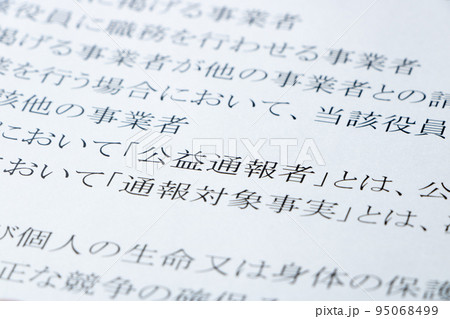 に掲げる事業者
役員に職務を行わせる事業者
掲げる事業者が他の事業者との請
業を行う場合において、当該役員
該他の事業者
において「公益通報者」とは、公
おいて「通報対象事実」とは、
び個人の生命又は身体の保護
正な競争の確保
PIXTA
pixta.jp - 95068499